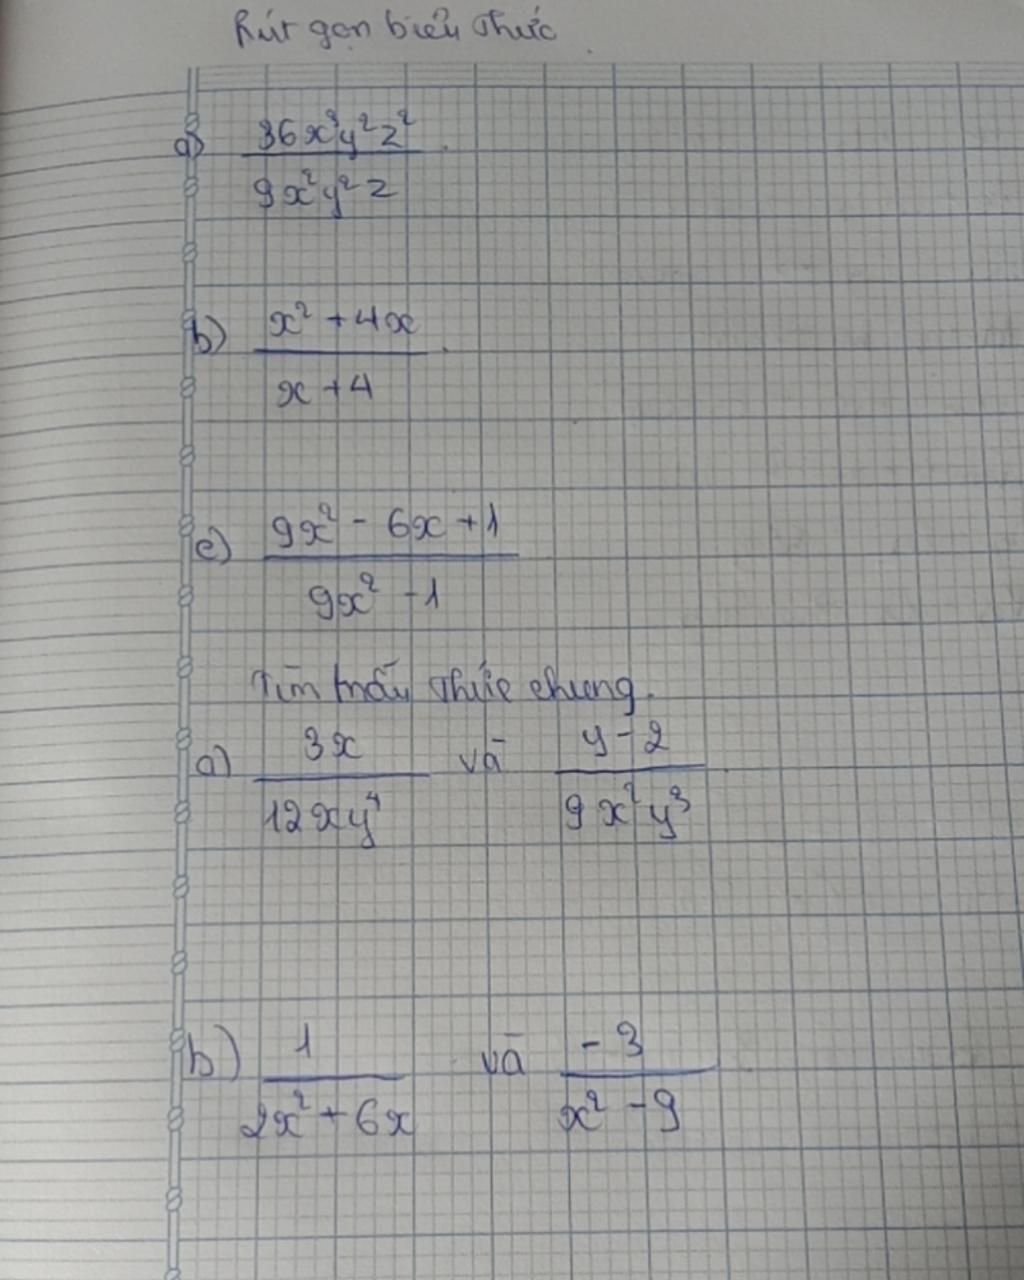 Rút gọn biểu thức
a) 36x³y²z² / 9x²y²z
b) x² + 4x / x + 4
c) 9x² - 6x + 1 / 9x² - 1
Tìm mẫu thức chung.
a) 3x / 12xy⁴ và y - 2 / 9x²y³
b) 1 / 2x² + 6x và - 3 / x² - 9